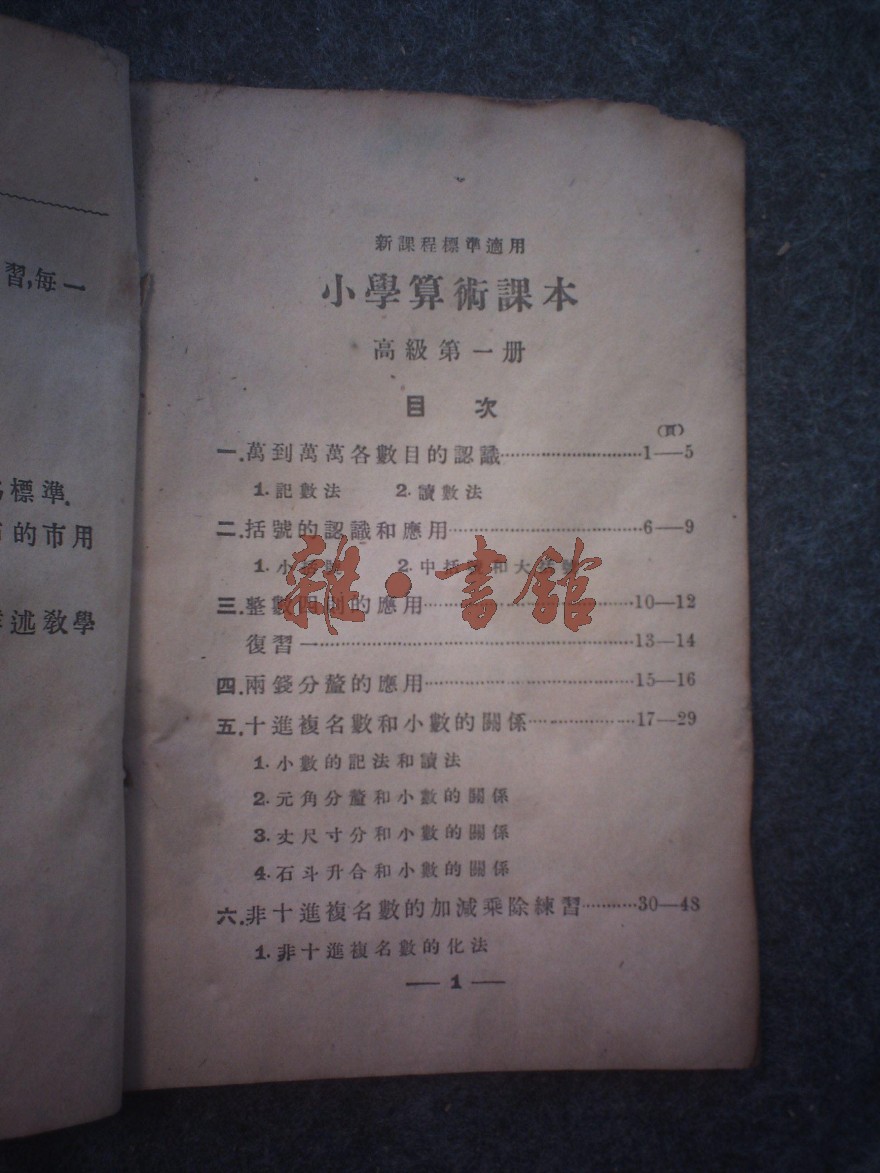 習,每一
標準.
的市用
述教學
新課程標準適用
小學算術課本
高級第一册
目 次
(頁)
一.萬到萬萬各數目的認識……………………1—5
1.記數法 2.讀數法
二.括號的認識和應用……………………6—9
1.小括號 2.中括號和大括號
三.整數四則的應用……………………10—12
復習一……………………13—14
四.兩錢分釐的應用……………………15—16
五.十進複名數和小數的關係……………17—29
1.小數的記法和讀法
2.元角分釐和小數的關係
3.丈尺寸分和小數的關係
4.石斗升合和小數的關係
六.非十進複名數的加減乘除練習…………30—48
1.非十進複名數的化法
— 1 —
雜·書館